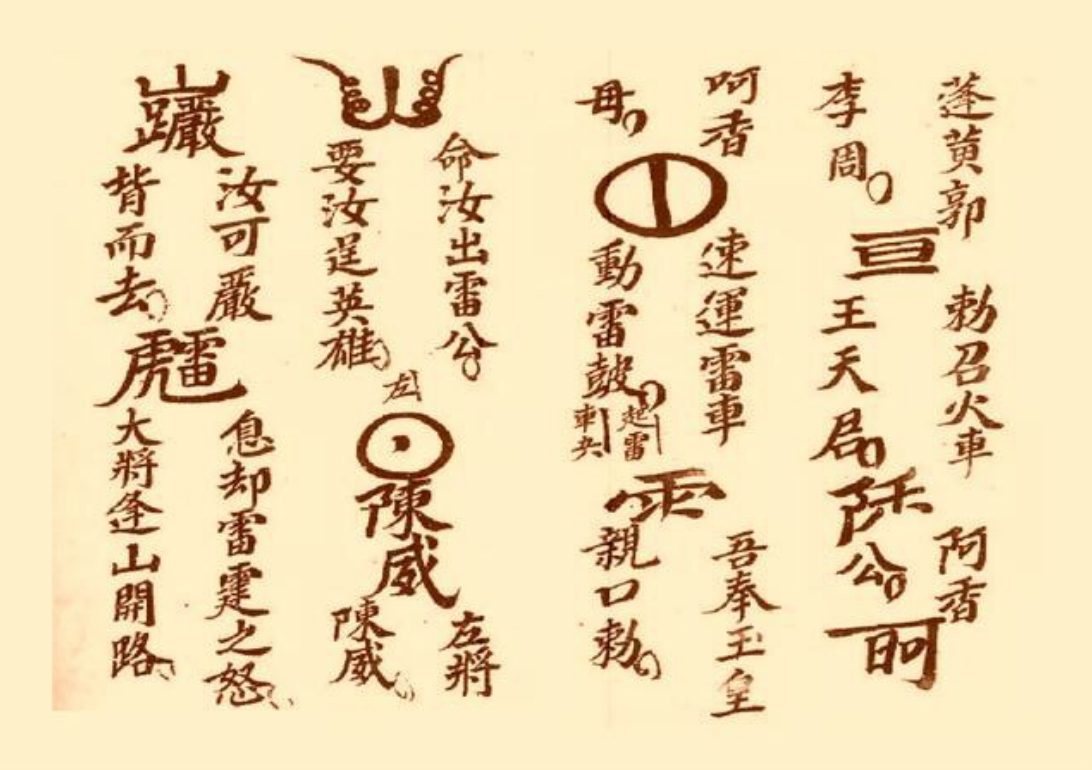 蓬黄郭
李周
亘
勅召火車
王天君
阿香
公
呵香
毋
速運雷車
動雷鼓
起雷
車
吾奉玉皇
親口勅
命汝出雷公
要汝逞英雄
左
陳威
左將
陳威
汝可嚴
背而去
息却雷霆之怒
大將逢山開路